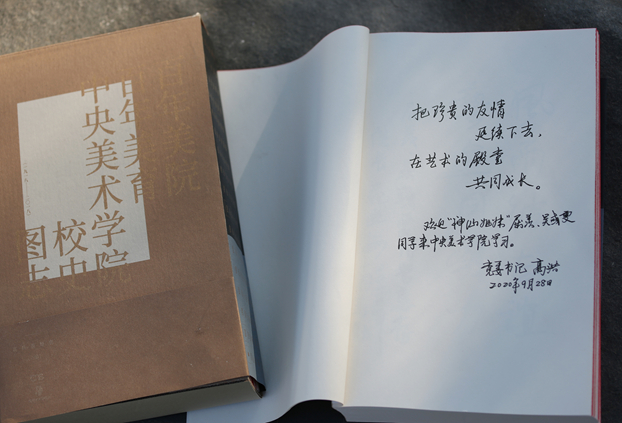 百年美育
中央美术学院
校史
图志
百年美院
把珍贵的友情
延续下去,
在艺术的殿堂
共同成长。
欢迎“神仙姐妹”屈善、吴彧更
同学来中央美术学院学习。
党委书记 高洪
2020年9月28日